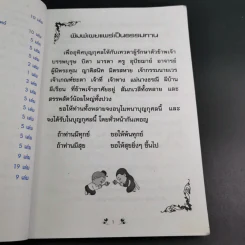 พิมพ์เผยแพร่เป็นธรรมทาน
เพื่ออุทิศบุญกุศลให้กับเทวดาผู้รักษาตัวข้าพเจ้า
บรรพบุรุษ บิดา มารดา ครู อุปัชฌาย์ อาจารย์
ผู้มีพระคุณ ญาติสนิท มิตรสหาย เจ้ากรรมนายเวร
เจ้าเกณฑ์ชะตา เจ้าที่ เจ้าทาง แม่นางธรณี มีบ้าน
มีเรือน ที่ข้าพเจ้าอาศัยอยู่ สัมภเวสีทั้งหลาย และ
สรรพสัตว์น้อยใหญ่ทั้งปวง
ขอให้ท่านทั้งหลายจงอนุโมทนาบุญกุศลนี้ และ
จงได้รับในบุญกุศลนี้ โดยทั่วหน้ากันเทอญ
ถ้าท่านมีทุกข์ ขอให้พ้นทุกข์
ถ้าท่านมีสุข ขอให้สุขยิ่งๆ ขึ้นไป